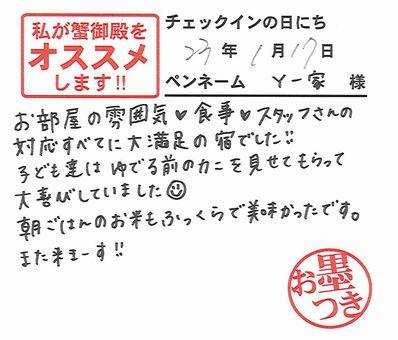 私が蟹御殿を
オススメ
します!!
チェックインの日にち
23年1月17日
ペンネーム Yー家 様
お部屋の雰囲気♥食事♥スタッフさんの
対応すべてに大満足の宿でした!!
子ども達はゆでる前のカニを見せてもらって
大喜びしていました☺
朝ごはんのお米もふっくらで美味かったです。
また来まーす!!
お墨
つき